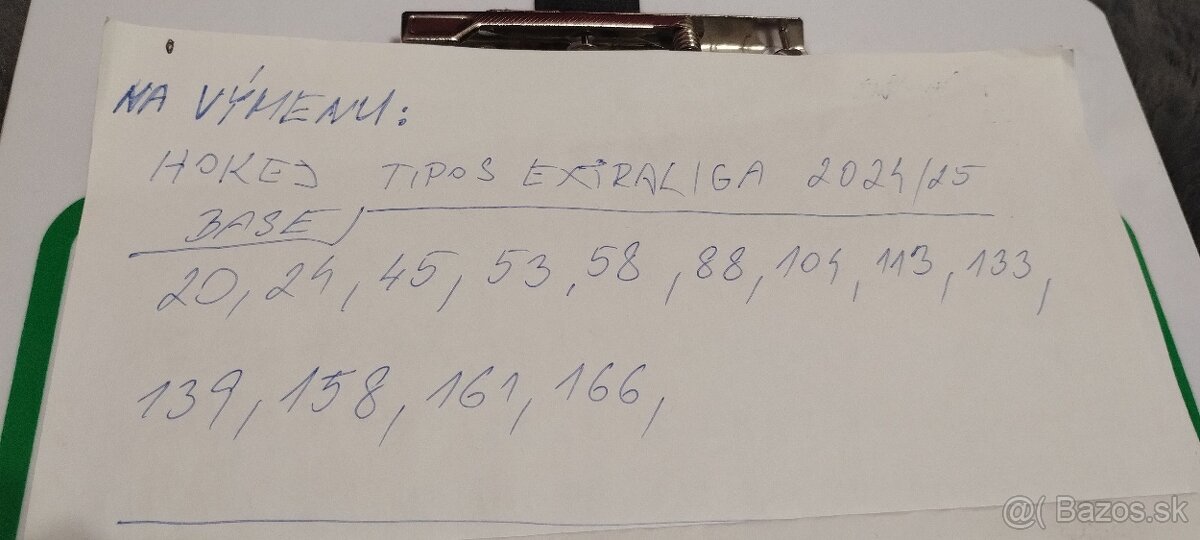 NA VÝMENU:
HOKEJ TIPOS EXTRALIGA 2024/25
BASE
20, 24, 45, 53, 58, 88, 104, 113, 133,
139, 158, 161, 166,
@( Bazos.sk